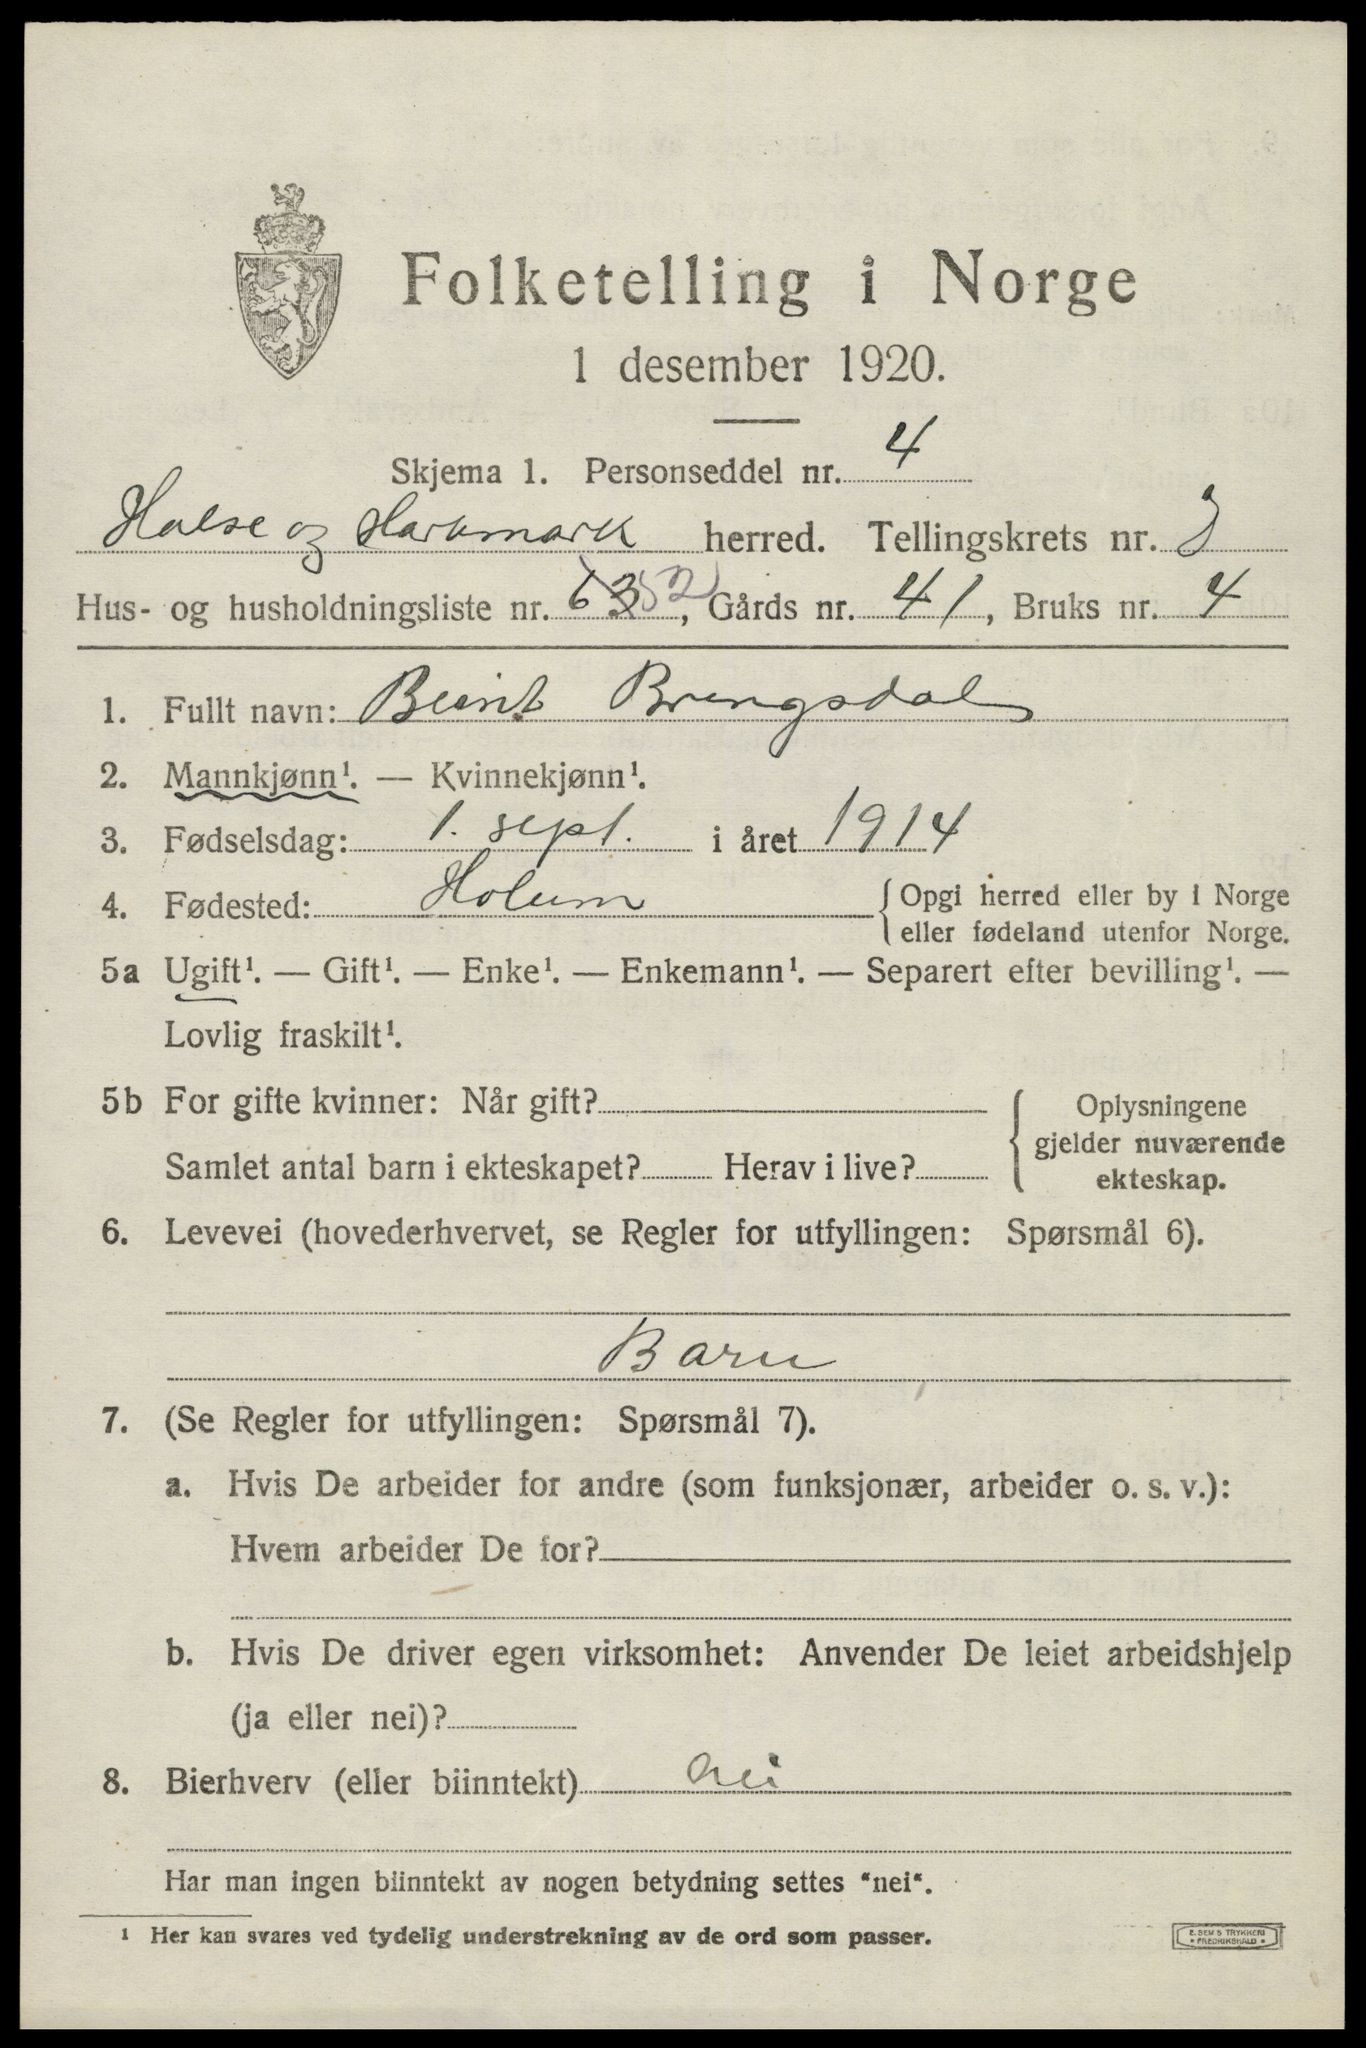 Folketelling i Norge
1 desember 1920.
Skjema 1. Personseddel nr. 4
Halse og Harkmark herred. Tellingskrets nr. 3
Hus- og husholdningsliste nr. 63 52, Gårds nr. 41, Bruks nr. 4
1. Fullt navn: Berint Bringsdal
2. Mannkjønn¹. — Kvinnekjønn¹.
3. Fødselsdag: 1. sept. i året 1914
4. Fødested: Holum {Opgi herred eller by i Norge
eller fødeland utenfor Norge.
5a Ugift¹. — Gift¹. — Enke¹. — Enkemann¹. — Separert efter bevilling¹. —
Lovlig fraskilt¹.
5b For gifte kvinner: Når gift?
Samlet antal barn i ekteskapet? Herav i live?
Oplysningene
gjelder nuværende
ekteskap.
6. Levevei (hovederhvervet, se Regler for utfyllingen: Spørsmål 6).
Barn
7. (Se Regler for utfyllingen: Spørsmål 7).
a. Hvis De arbeider for andre (som funksjonær, arbeider o. s. v.):
Hvem arbeider De for?
b. Hvis De driver egen virksomhet: Anvender De leiet arbeidshjelp
(ja eller nei)?
8. Bierhverv (eller biinntekt) Nei
Har man ingen biinntekt av nogen betydning settes "nei".
¹ Her kan svares ved tydelig understrekning av de ord som passer.
E. SEM'S TRYKKERI
• FREDRIKSHALD •